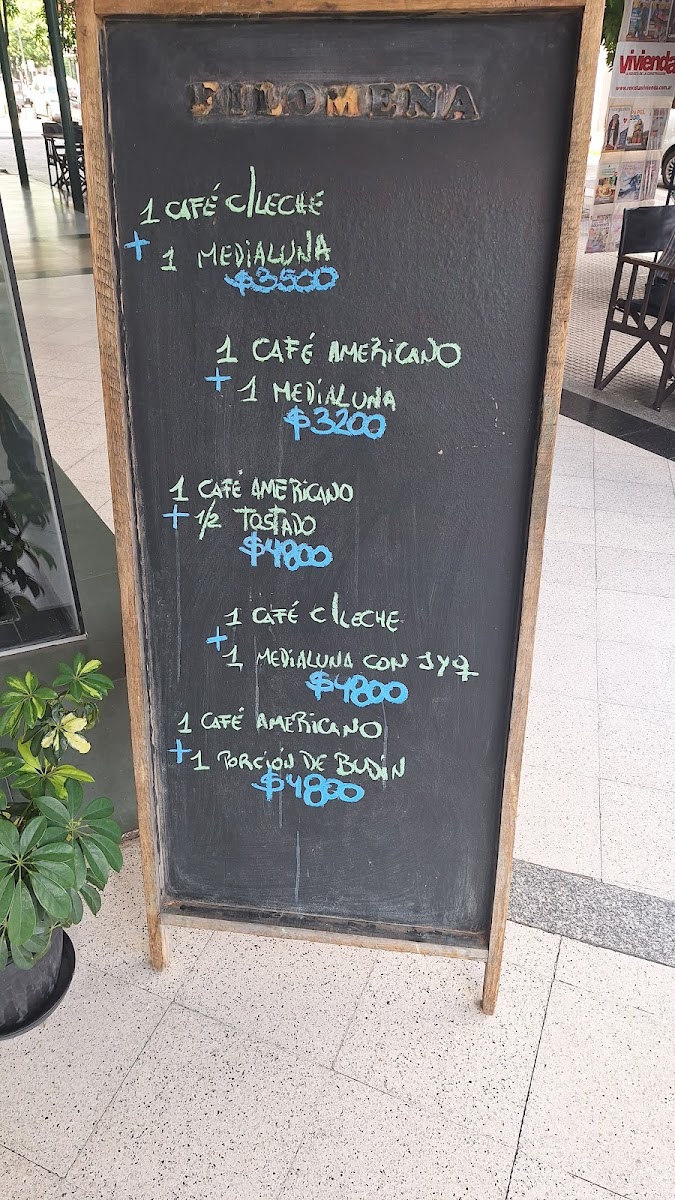 FILOMENA
1 CAFÉ C/LECHE
+ 1 MEDIALUNA
$3500
1 CAFÉ AMERICANO
+ 1 MEDIALUNA
$3200
1 CAFÉ AMERICANO
+ 1/2 TOSTADO
$4800
1 CAFÉ C/LECHE
+
1 MEDIALUNA CON JYQ
$4800
1 CAFÉ AMERICANO
+ 1 PORCIÓN DE BUDÍN
$4800
vivienda